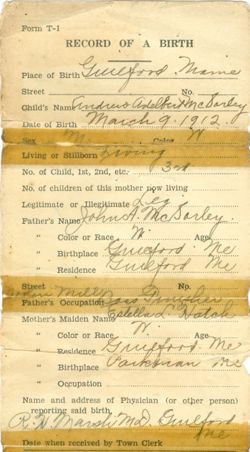 Form T-1
RECORD OF A BIRTH
Place of Birth Guilford Maine
Street No.
Child's Name Andrew Adelbert McSorley
Date of Birth March 9. 1912
Sex Color W
Living or Stillborn Living
No. of Child, 1st, 2nd, etc. 3rd
No. of children of this mother now living
Legitimate or Illegitimate Leg
Father's Name John A. McSorley.
" Color or Race W Age
" Birthplace Guilford Me
" Residence Guilford Me
Street No.
Father's Occupation
Mother's Maiden Name Estella L Hatch
" Color or Race W. Age
" Residence Guilford Me
" Birthplace Parkman Me
" Occupation
Name and address of Physician (or other person)
reporting said birth,
R. H. Marsh M.D. Guilford
Me
Date when received by Town Clerk